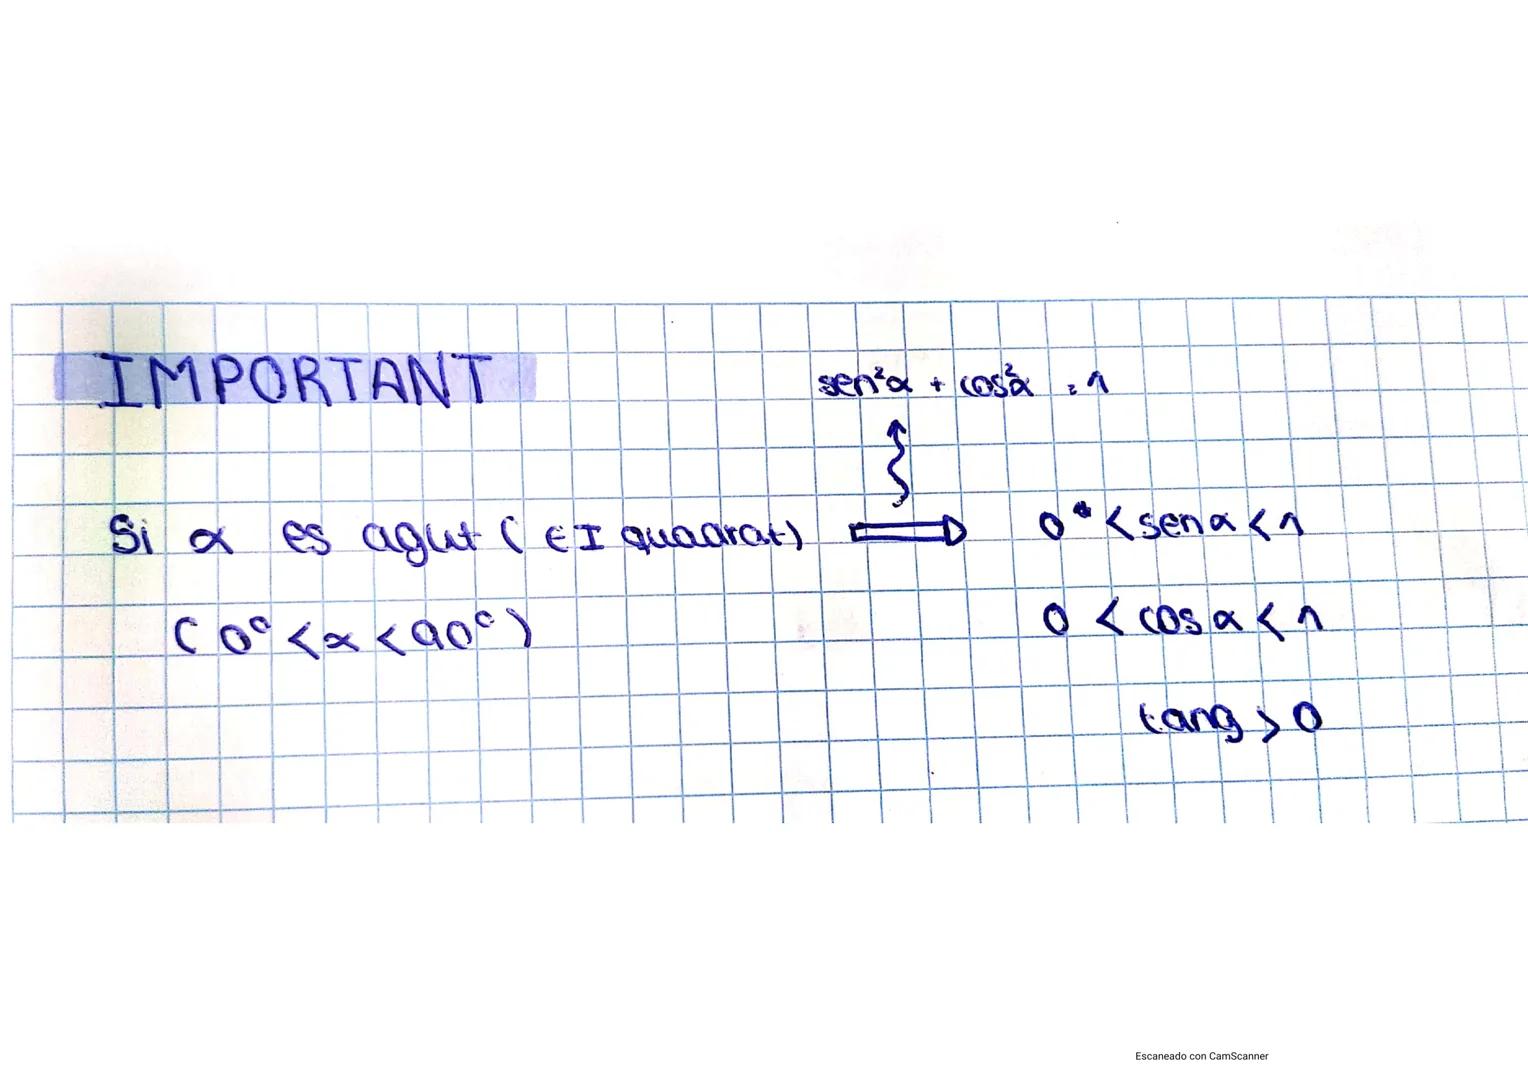 IMPORTANT
sen²α + cos²α = 1
Si α es agut (∈ I quadrat) ⇒ 0 < sen α < 1
(0° < α < 90°)
0 < cos α < 1
tang > 0
Escaneado con CamScanner